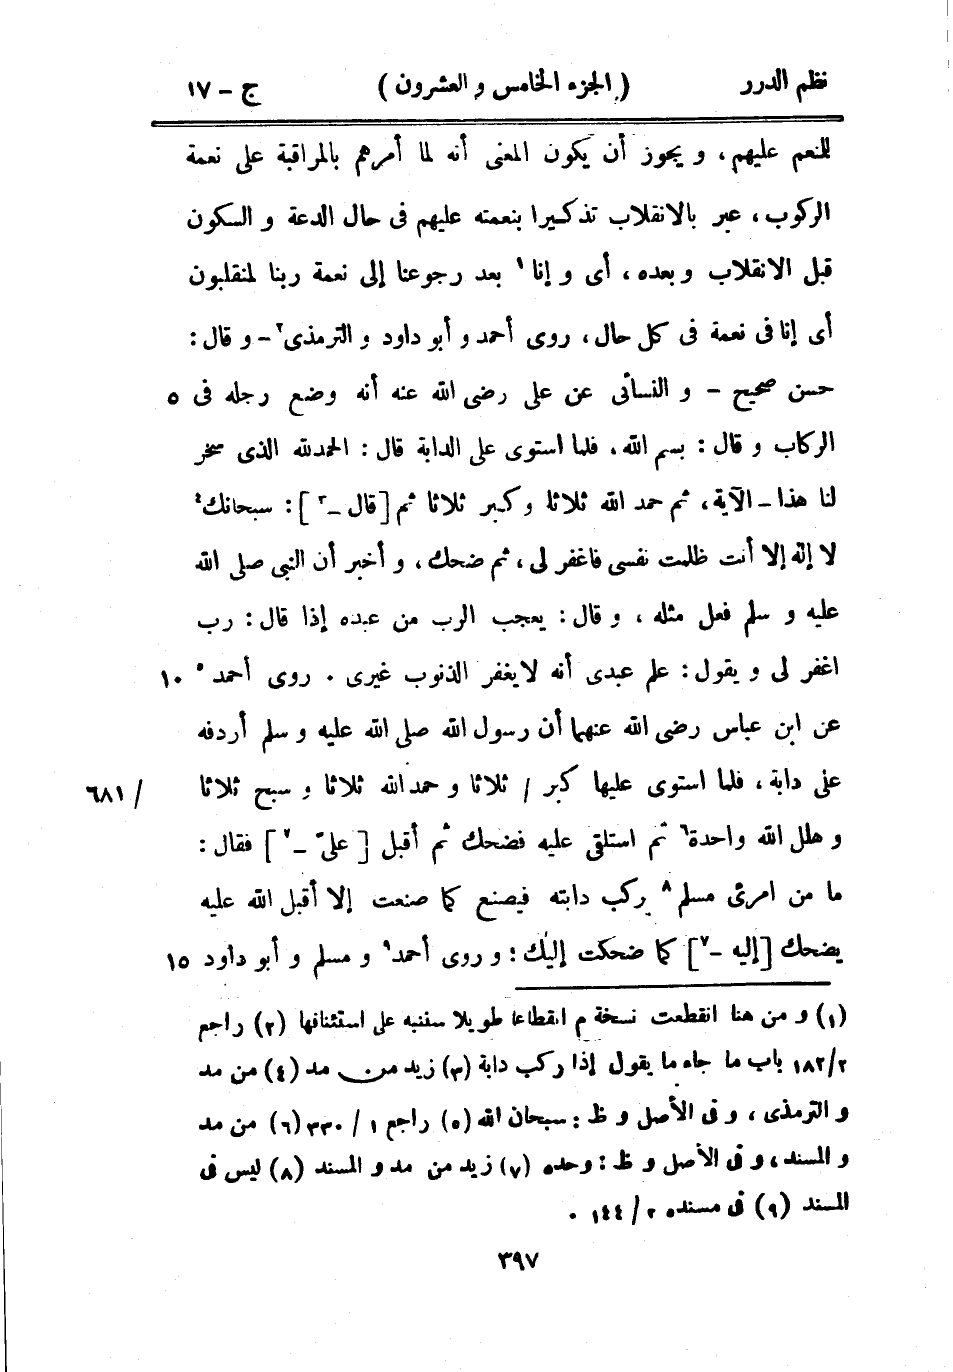 نظم الدرر ( الجزء الخامس و العشرون ) ج – ١٧
للنعم عليهم، و يجوز أن يكون المعنى أنه لما أمرهم بالمراقبة على نعمة
الركوب، عبر بالانقلاب تذكيرا بنعمته عليهم فى حال الدعة و السكون
قبل الانقلاب و بعده، أى و إنا١ بعد رجوعنا إلى نعمة ربنا لمنقلبون
أى إنا فى نعمة فى كل حال، روى أحمد و أبو داود و الترمذى٢ – و قال:
حسن صحيح – و النسائى عن على رضى الله عنه أنه وضع رجله فى ٥
الركاب و قال: بسم الله، فلما استوى على الدابة قال: الحمد لله الذى سخر
لنا هذا – الآية، ثم حمد الله ثلاثا و كبر ثلاثا ثم [قال –٣]: سبحانك٤
لا إله إلا أنت ظلمت نفسى فاغفر لى، ثم ضحك، و أخبر أن النبى صلى الله
عليه و سلم فعل مثله، و قال: يعجب الرب من عبده إذا قال: رب
اغفر لى و يقول: علم عبدى أنه لا يغفر الذنوب غيرى . روى أحمد٥ ١٠
عن ابن عباس رضى الله عنهما أن رسول الله صلى الله عليه و سلم أردفه
على دابة، فلما استوى عليها كبر / ثلاثا و حمد الله ثلاثا و سبح ثلاثا / ٦٨١
و هلل الله واحدة٦ ثم استلقى عليه فضحك ثم أقبل [علىّ –٧] فقال:
ما من امرئ مسلم٨ يركب دابته فيصنع كما صنعت إلا أقبل الله عليه
يضحك [إليه –٧] كما ضحكت إليك: و روى أحمد٩ و مسلم و أبو داود ١٥
(١) و من هنا انقطعت نسخة م انقطاعا طويلا سننبه على استئنافها (٢) راجع
٢/١٨٢ باب ما جاء ما يقول إذا ركب دابة (٣) زيد من مد (٤) من مد
و الترمذى، و فى الأصل و ظ: سبحان الله (٥) راجع ١ / ٣٣٠ (٦) من مد
و المسند، و فى الأصل و ظ: وحده (٧) زيد من مد و المسند (٨) ليس فى
المسند (٩) فى مسنده ٢ / ١٤٤ .
٣٩٧